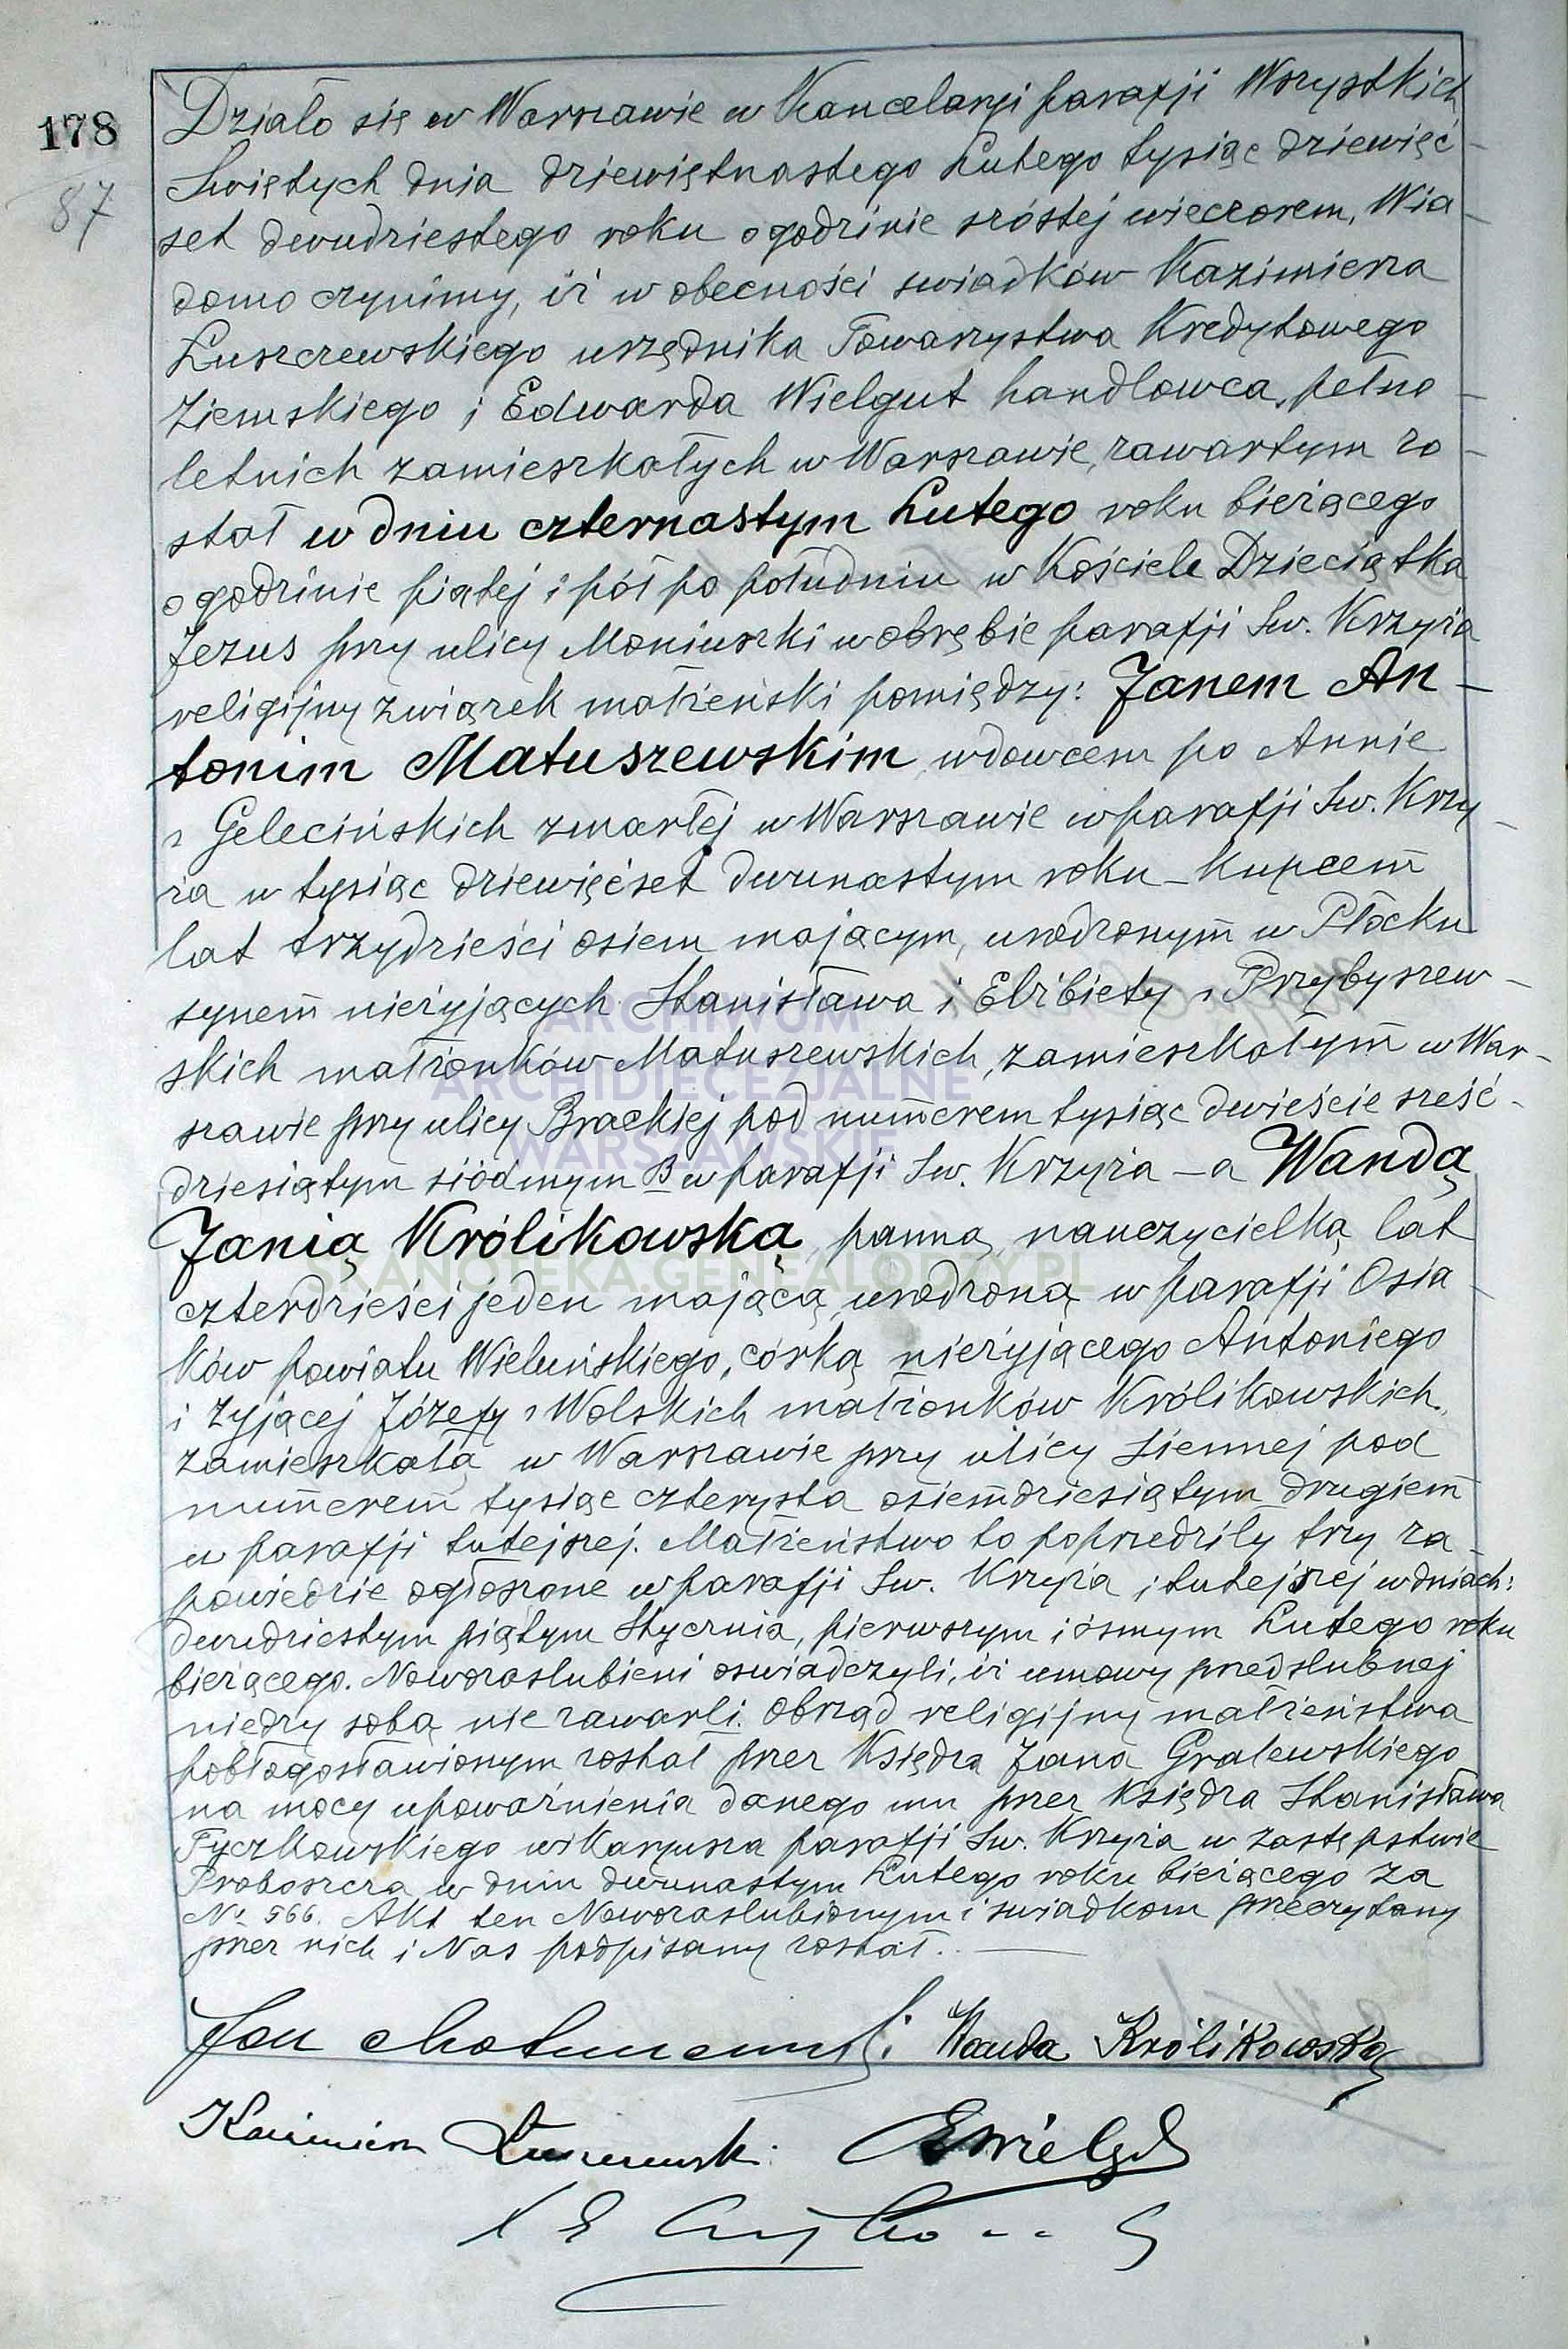 178
87
Działo się w Warszawie w Kancelarji parafji Wszystkich
Świętych dnia dziewiętnastego Lutego tysiąc dziewięć-
set dwudziestego roku o godzinie szóstej wieczorem, Wia-
domo czynimy, iż w obecności świadków Kazimierza
Łuszczewskiego urzędnika Towarzystwa Kredytowego
Ziemskiego i Edwarda Wielgut handlowca, pełno-
letnich zamieszkałych w Warszawie, zawartym zo-
stał w dniu czternastym Lutego roku bieżącego
o godzinie piątej i pół po południu w Kościele Dzieciątka
Jezus przy ulicy Moniuszki w obrębie parafji Św. Krzyża
religijny związek małżeński pomiędzy: Janem An-
tonim Matuszewskim, wdowcem po Annie
z Gelecińskich zmarłej w Warszawie w parafji Św. Krzy-
ża w tysiąc dziewięćset dwunastym roku - kupcem
lat trzydzieści osiem mającym, urodzonym w Płocku
synem nieżyjących Stanisława i Elżbiety z Przybyszew-
skich małżonków Matuszewskich, zamieszkałym w War-
szawie przy ulicy Brackiej pod numerem tysiąc dwieście sześć-
dziesiątym siódmym B w parafji Św. Krzyża - a Wandą
Janią Królikowską, panną, nauczycielką lat
czterdzieści jeden mającą, urodzoną w parafji Osia-
ków powiatu Wieluńskiego, córką nieżyjącego Antoniego
i żyjącej Józefy z Wolskich małżonków Królikowskich,
zamieszkałą w Warszawie przy ulicy Siennej pod
numerem tysiąc czterysta osiemdziesiątym drugiem
w parafji tutejszej. Małżeństwo to poprzedziły trzy za-
powiedzie ogłoszone w parafji Św. Krzyża i tutejszej w dniach:
dwudziestym piątym Stycznia, pierwszym i ósmym Lutego roku
bieżącego. Nowozaślubieni oświadczyli, iż umowy przedślubnej
między sobą nie zawarli. Obrząd religijny małżeństwa
pobłogosławionym został przez Księdza Jana Gralewskiego
na mocy upoważnienia danego mu przez Księdza Stanisława
Tyczkowskiego wikaryusza parafji Św. Krzyża w zastępstwie
Proboszcza w dniu dwunastym Lutego roku bieżącego za
№ 566. Akt ten Nowozaślubionym i świadkom przeczytany
przez nich i Nas podpisany został.
Jan Matuszewski. Wanda Królikowska
Kazimierz Łuszczewski. EWielgut
ARCHIWUM
ARCHIDIECEZJALNE
WARSZAWSKIE
SKANOTEKA.GENEALODZY.PL